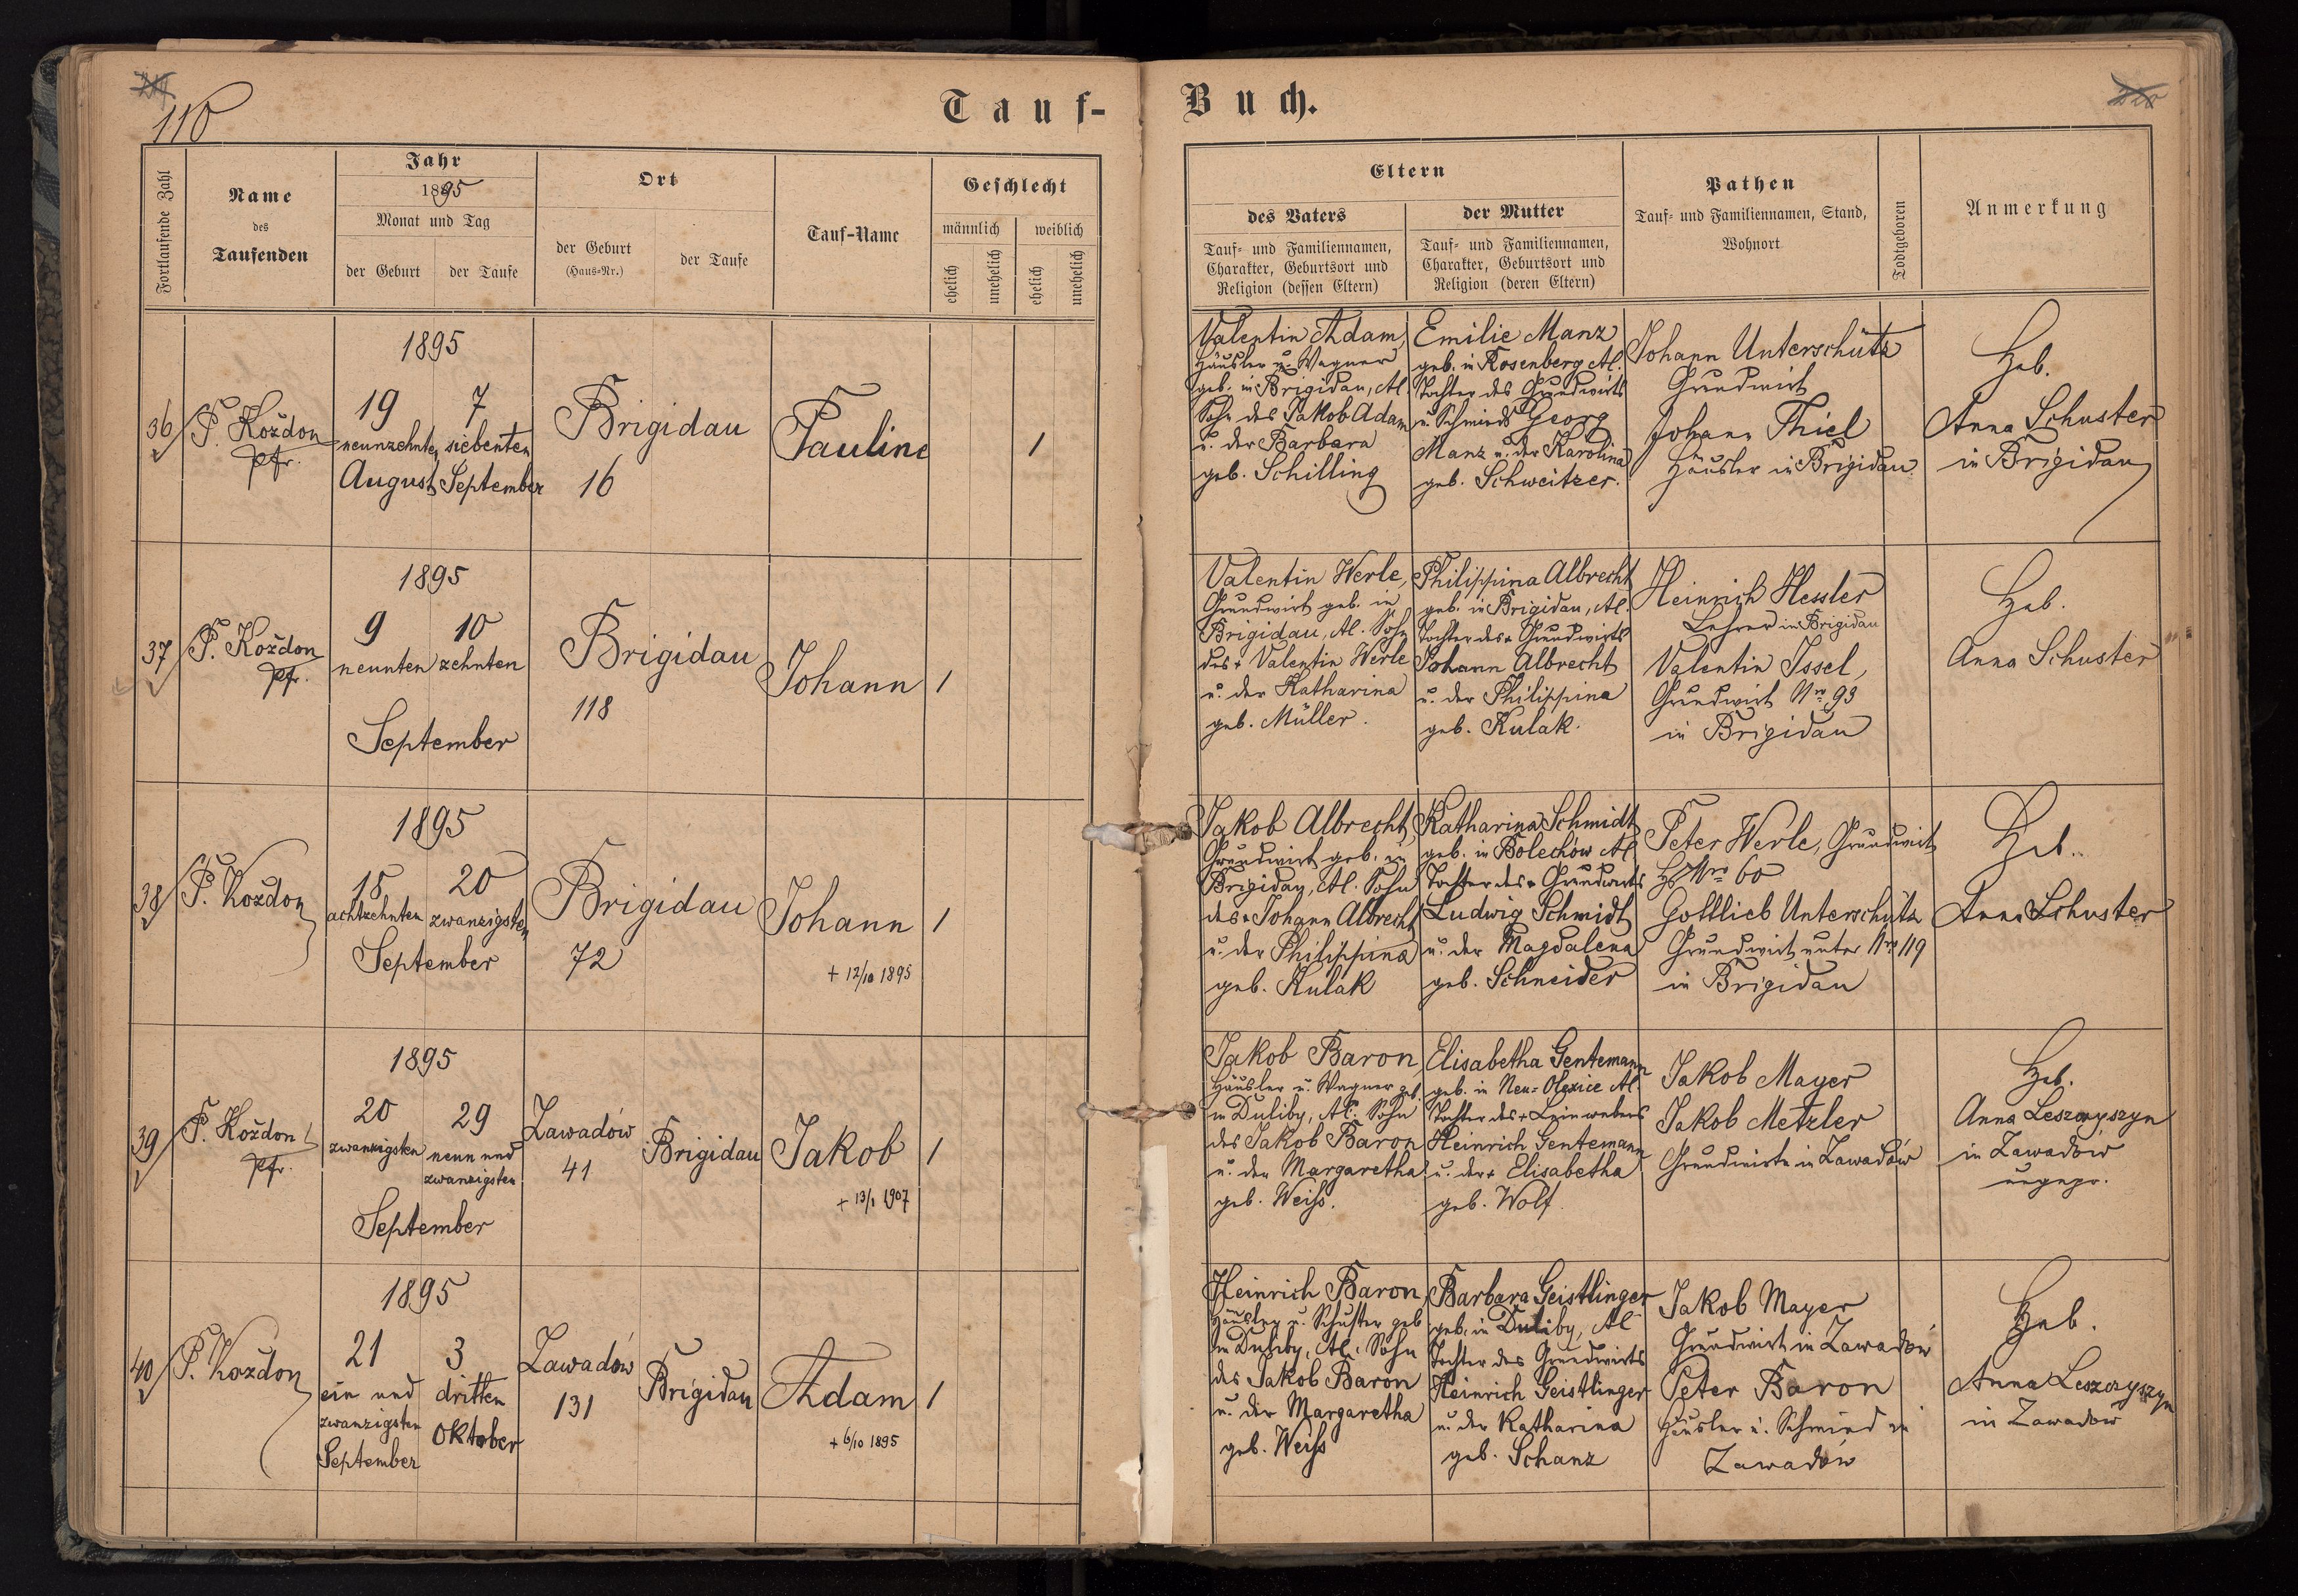 110
Tauf-
Buch.
Fortlaufende Zahl
Name
des
Taufenden
Jahr
1895
Monat und Tag
der Geburt
der Taufe
Ort
der Geburt
(Haus-Nr.)
der Taufe
Tauf-Name
Geschlecht
männlich
weiblich
ehelich
unehelich
ehelich
unehelich
Eltern
des Vaters
Tauf- und Familiennamen,
Charakter, Geburtsort und
Religion (dessen Eltern)
der Mutter
Tauf- und Familiennamen,
Charakter, Geburtsort und
Religion (deren Eltern)
Pathen
Tauf- und Familiennamen, Stand,
Wohnort
Todtgeboren
Anmerkung
36
P. Koždon
Pfr.
1895
19
neunzehnten
August
7
siebenten
September
Brigidau
16
Pauline
1
Valentin Adam,
Häusler u. Wagner
geb. in Brigidau, Al.
Sohn des Jakob Adam
u. der Barbara
geb. Schilling
Emilie Manz
geb. in Rosenberg Al.
Tochter des Grundwirts
u. Schmieds Georg
Manz u. der Karolina
geb. Schweitzer.
Johann Unterschütz
Grundwirt
Johann Thiel
Häusler in Brigidau.
Heb.
Anna Schuster
in Brigidau
37
P. Koždon
Pfr.
1895
9
neunten
10
zehnten
September
Brigidau
118
Johann
1
Valentin Werle,
Grundwirt geb. in
Brigidau, Al. Sohn
des + Valentin Werle
u. der Katharina
geb. Müller.
Philippina Albrecht
geb. in Brigidau, Al.
Tochter des + Grundwirts
Johann Albrecht
u. der Philippina
geb. Kulak.
Heinrich Hessler
Lehrer in Brigidau
Valentin Issel,
Grundwirt Nro 93
in Brigidau
Heb.
Anna Schuster
38
P. Koždon
1895
18
achtzehnten
20
zwanzigsten
September
Brigidau
72
Johann
+ 12/10 1895
1
Jakob Albrecht,
Grundwirt geb. in
Brigidau, Al. Sohn
des + Johann Albrecht
u. der Philippina
geb. Kulak
Katharina Schmidt
geb. in Bolechów Al
Tochter des + Grundwirts
Ludwig Schmidt
u. der Magdalena
geb. Schneider
Peter Werle, Grundwirt
Hs Nro 60
Gottlieb Unterschütz
Grundwirt unter Nro 119
in Brigidau
Heb.
Anna Schuster
39
P. Koždon
Pfr.
1895
20
zwanzigsten
29
neun und
zwanzigsten
September
Zawadów
41
Brigidau
Jakob
+ 13/1 1907
1
Jakob Baron,
Häusler u. Wagner geb.
in Duliby, Al. Sohn
des Jakob Baron
u. der Margaretha
geb. Weiss.
Elisabetha Gentemann
geb. in Neu-Olexice Al
Tochter des + Leinwebers
Heinrich Gentemann
u. der + Elisabetha
geb. Wolf.
Jakob Mayer
Jakob Metzler
Grundwirte in Zawadów
Heb.
Anna Leszczyszyn
in Zawadów
ungepr.
40
P. Koždon
1895
21
ein und
zwanzigsten
September
3
dritten
Oktober
Zawadów
131
Brigidau
Adam
+ 6/10 1895
1
Heinrich Baron
Häusler u. Schuster geb
in Duliby, Al. Sohn
des Jakob Baron
u. der Margaretha
geb. Weiss
Barbara Geistlinger
geb. in Duliby, Al
Tochter des Grundwirts
Heinrich Geistlinger
u. der Katharina
geb. Schanz
Jakob Mayer
Grundwirt in Zawadów
Peter Baron
Häusler u. Schmied in
Zawadów
Heb.
Anna Leszczyszyn
in Zawadów